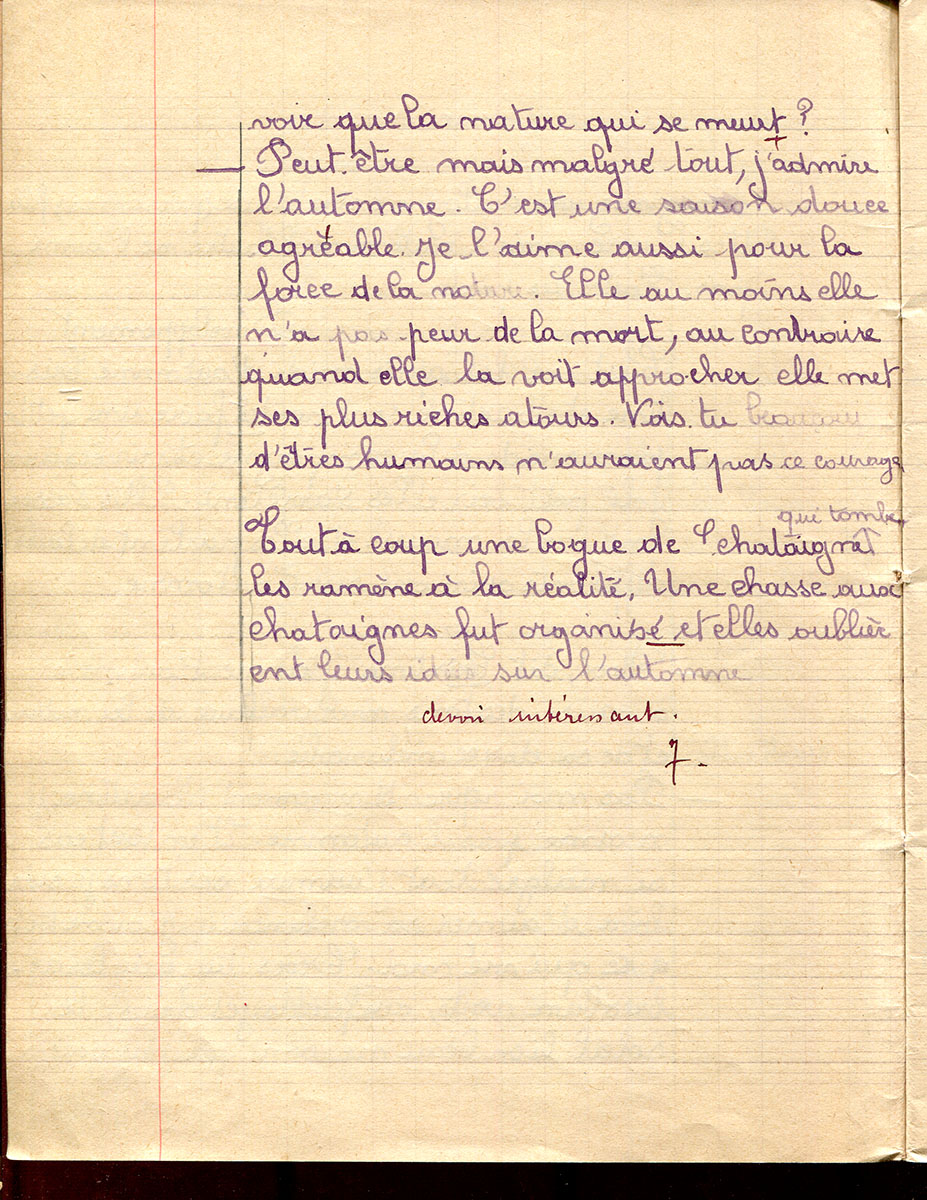 voir que la nature qui se meurt ?
— Peut-être mais malgré tout, j'admire
l'automne. C'est une saison douce
agréable. Je l'aime aussi pour la
force de la nature. Elle au moins elle
n'a pas peur de la mort, au contraire
quand elle la voit approcher elle met
ses plus riches atours. Vois-tu beaucoup
d'êtres humains n'auraient pas ce courage
qui tombe
Tout à coup une bogue de chataigne
les ramène à la réalité. Une chasse aux
chataignes fut organisé et elles oublièr
ent leurs idées sur l'automne
devoir intéressant.
7.